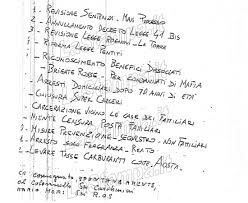 - REVISIONE SENTENZA - MAXI PROCESSO
- ANNULLAMENTO DECRETO LEGGE 41 BIS
- REVISIONE LEGGE ROGNONI - LA TORRE
- RIFORMA LEGGE PENTITI
- RICONOSCIMENTO BENEFICI DISSOCIATI
- BRIGATE ROSSE - PER CONDANNATI DI MAFIA
- ARRESTI DOMICILIARI DOPO 70 ANNI DI ETA'
- CHIUSURA SUPER CARCERI
- CARCERAZIONE VICINO LE CASE DEI FAMILIARI
- NIENTE CENSURA POSTA FAMILIARI
- MISURE PREVENZIONE - SEQUESTRO - NON FAMILIARI
- ARRESTO SOLO FLAGRANZA - REATO
- LEVARE TASSE CARBURANTI COME AOSTA
consegnato spontaneamente
al Colonnello
MARIO MORI R.O.S